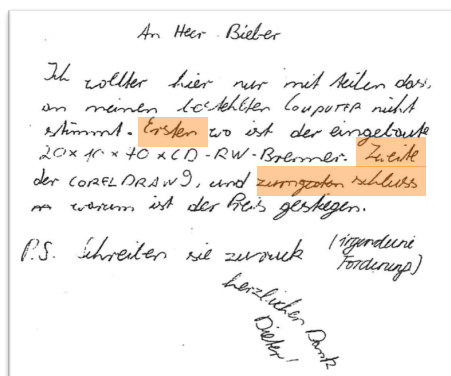 An Herr Bieber
Ich wollter hier nur mit teilen dass,
an meinen bestehlten Computer nicht
stimmt. Ersten wo ist der eingebaute
20x10x70xCD-RW-Brenner. Zweite
der CORELDRAW9, und zumguten schluss
warum ist der Preis gestiegen.
P.S. Schreiben sie zurück (irgendeine
Forderung)
herzlichen Dank
Dieter!